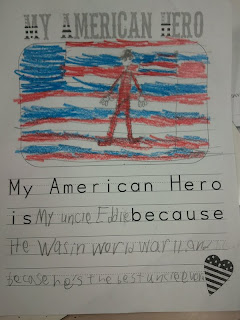 MY AMERICAN HERO
My American Hero
is My uncle Eddie because
He Was in world war II and
becose he's the best uncle